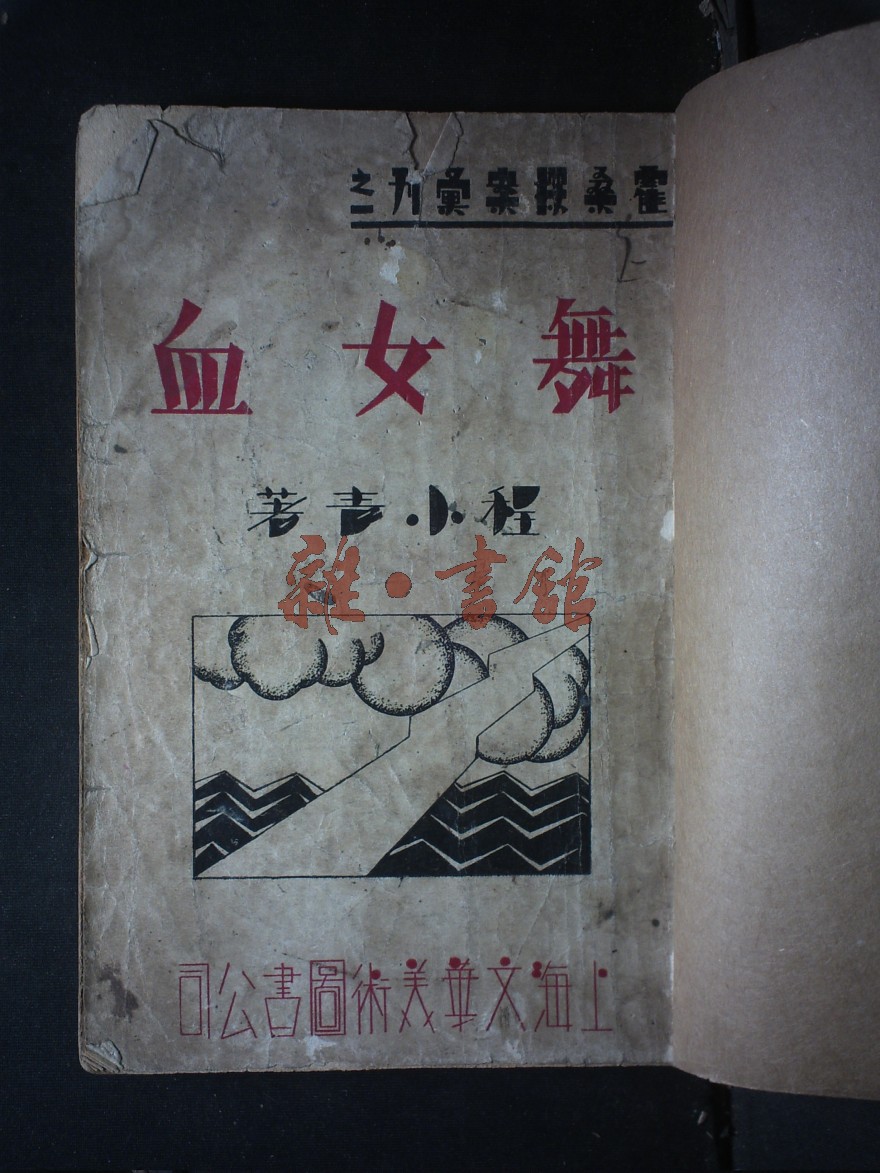 霍桑探案彙刊之一
舞女血
程小青著
雜·書館
上海文華美術圖書公司